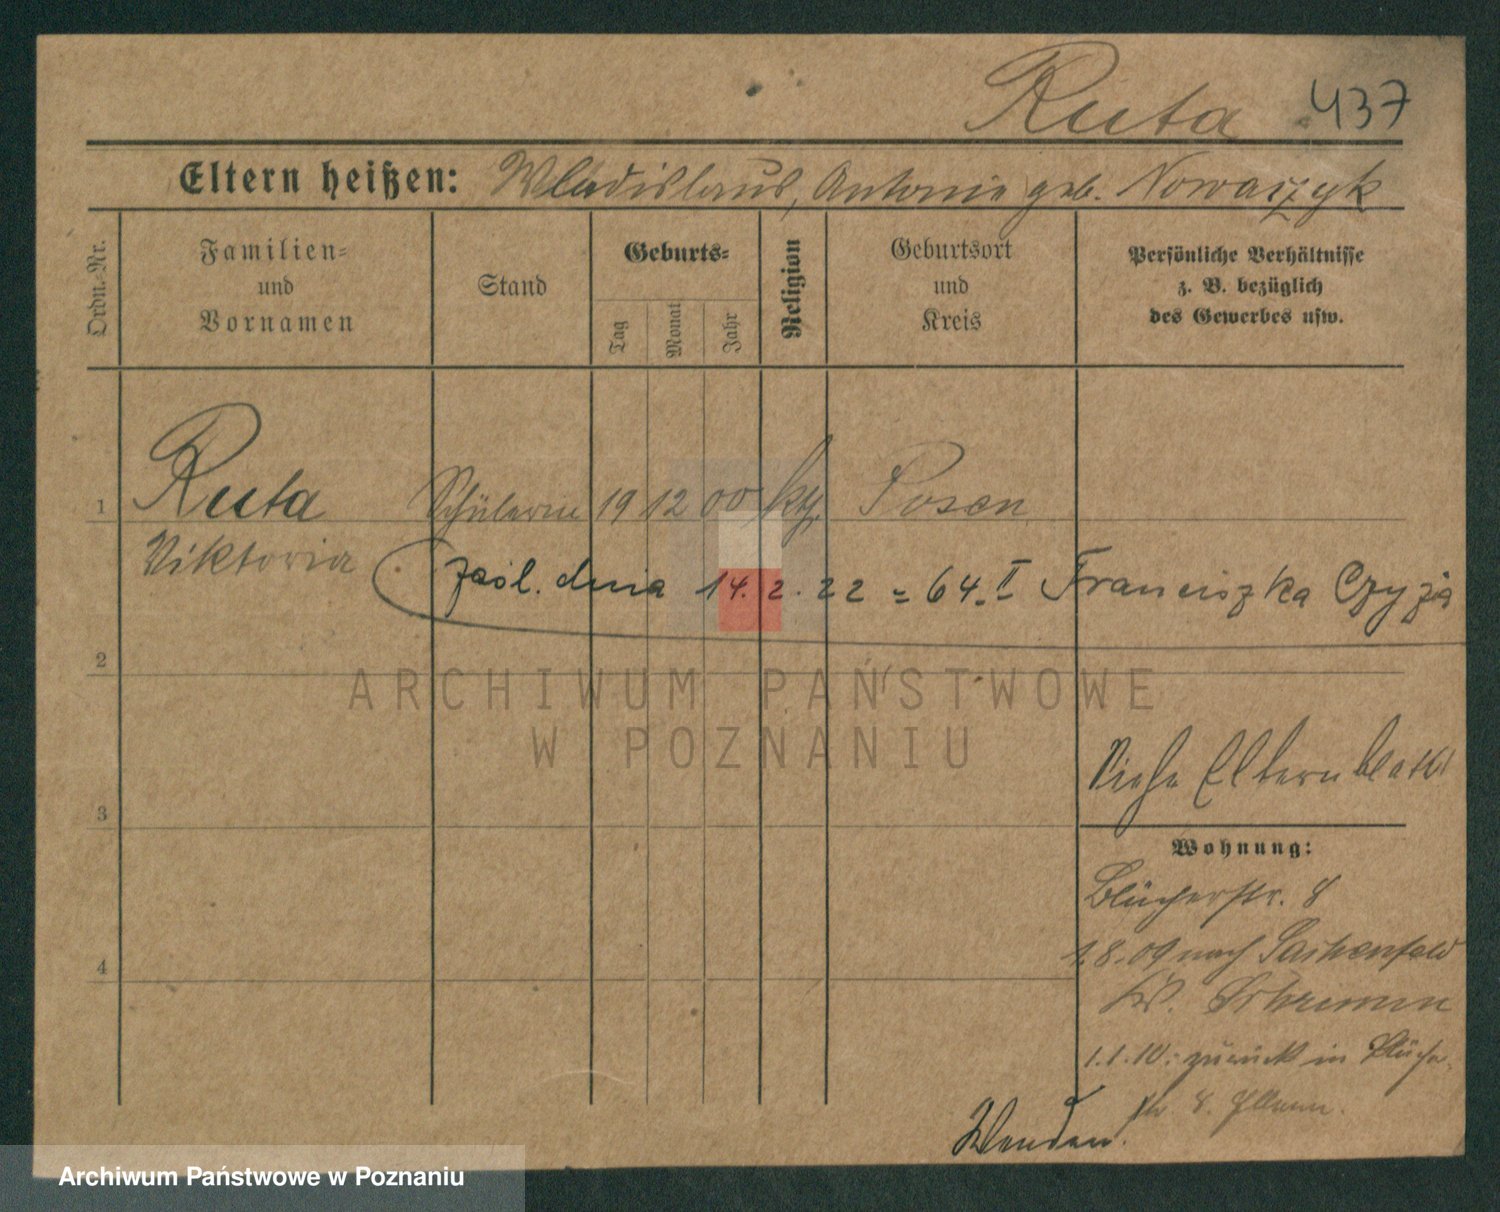 Ruta 437
Eltern heißen: Wladislaus, Antonie geb. Nowaczyk
Ordn.-Nr.
Familien-
und
Vornamen
Stand
Geburts-
Tag
Monat
Jahr
Religion
Geburtsort
und
Kreis
Persönliche Verhältnisse
z. B. bezüglich
des Gewerbes usw.
1 Ruta Schülerin 19 12 00 kth. Posen
Viktoria
zaśl. dnia 14.2.22 = 64.II Franciszka Czyża
2
ARCHIWUM PAŃSTWOWE
W POZNANIU
Siehe Elternblatt
3
Wohnung:
Blücherstr. 8
1.8.09 nach
4
Kr. Schrimm
1.1.10: zurück in Blücher-
str 8.
Wenden!
Archiwum Państwowe w Poznaniu